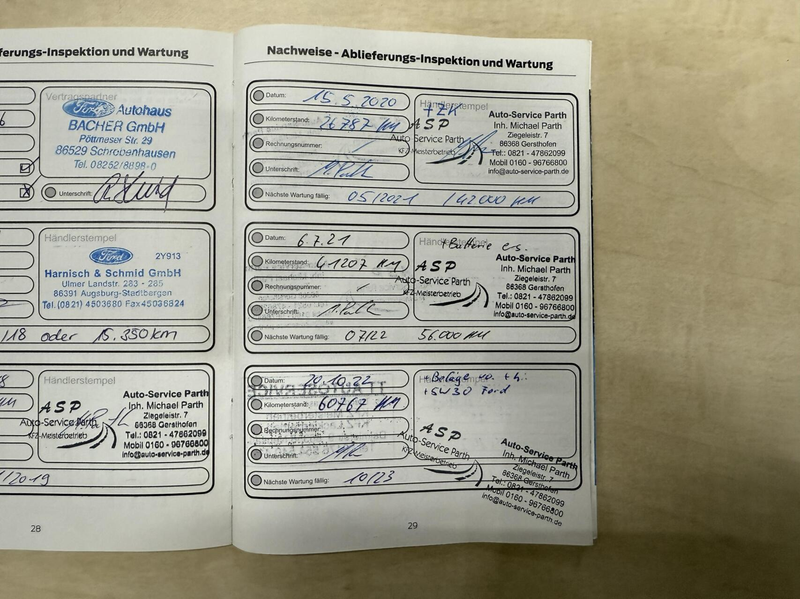 ferungs-Inspektion und Wartung
Vertragspartner
Ford Autohaus
BACHER GmbH
Pöttmeser Str. 29
86529 Schrobenhausen
Tel. 08252/8898-0
Unterschrift:
Händlerstempel
Ford
2Y913
Harnisch & Schmid GmbH
Ulmer Landstr. 283 - 285
86391 Augsburg-Stadtbergen
Tel. (0821) 4503680 Fax 45036824
/18 oder 15.350 km
Händlerstempel
ASP
Auto-Service Parth
KFZ-Meisterbetrieb
Auto-Service Parth
Inh. Michael Parth
Ziegeleistr. 7
86368 Gersthofen
Tel.: 0821 - 47862099
Mobil 0160 - 96766800
info@auto-service-parth.de
/2019
28
Nachweise - Ablieferungs-Inspektion und Wartung
Datum: 15.5.2020
Kilometerstand: 26787 KM
Rechnungsnummer: /
Unterschrift:
Nächste Wartung fällig: 05/2021 / 42000 KM
Händlerstempel
+ZK
ASP
Auto-Service Parth
KFZ-Meisterbetrieb
Auto-Service Parth
Inh. Michael Parth
Ziegeleistr. 7
86368 Gersthofen
Tel.: 0821 - 47862099
Mobil 0160 - 96766800
info@auto-service-parth.de
Datum: 6.7.21
Kilometerstand: 41207 KM
Rechnungsnummer: /
Unterschrift:
Nächste Wartung fällig: 07/22 56.000 KM
+Batterie es.
ASP
Auto-Service Parth
KFZ-Meisterbetrieb
Auto-Service Parth
Inh. Michael Parth
Ziegeleistr. 7
86368 Gersthofen
Tel.: 0821 - 47862099
Mobil 0160 - 96766800
info@auto-service-parth.de
Datum: 20.10.22
Kilometerstand: 60767 KM
Rechnungsnummer:
Unterschrift:
Nächste Wartung fällig: 10/23
Händlerstempel
+Beläge vo. + h.
+5W30 Ford
ASP
Auto-Service Parth
KFZ-Meisterbetrieb
Auto-Service Parth
Inh. Michael Parth
Ziegeleistr. 7
86368 Gersthofen
Tel.: 0821 - 47862099
Mobil 0160 - 96766800
info@auto-service-parth.de
29